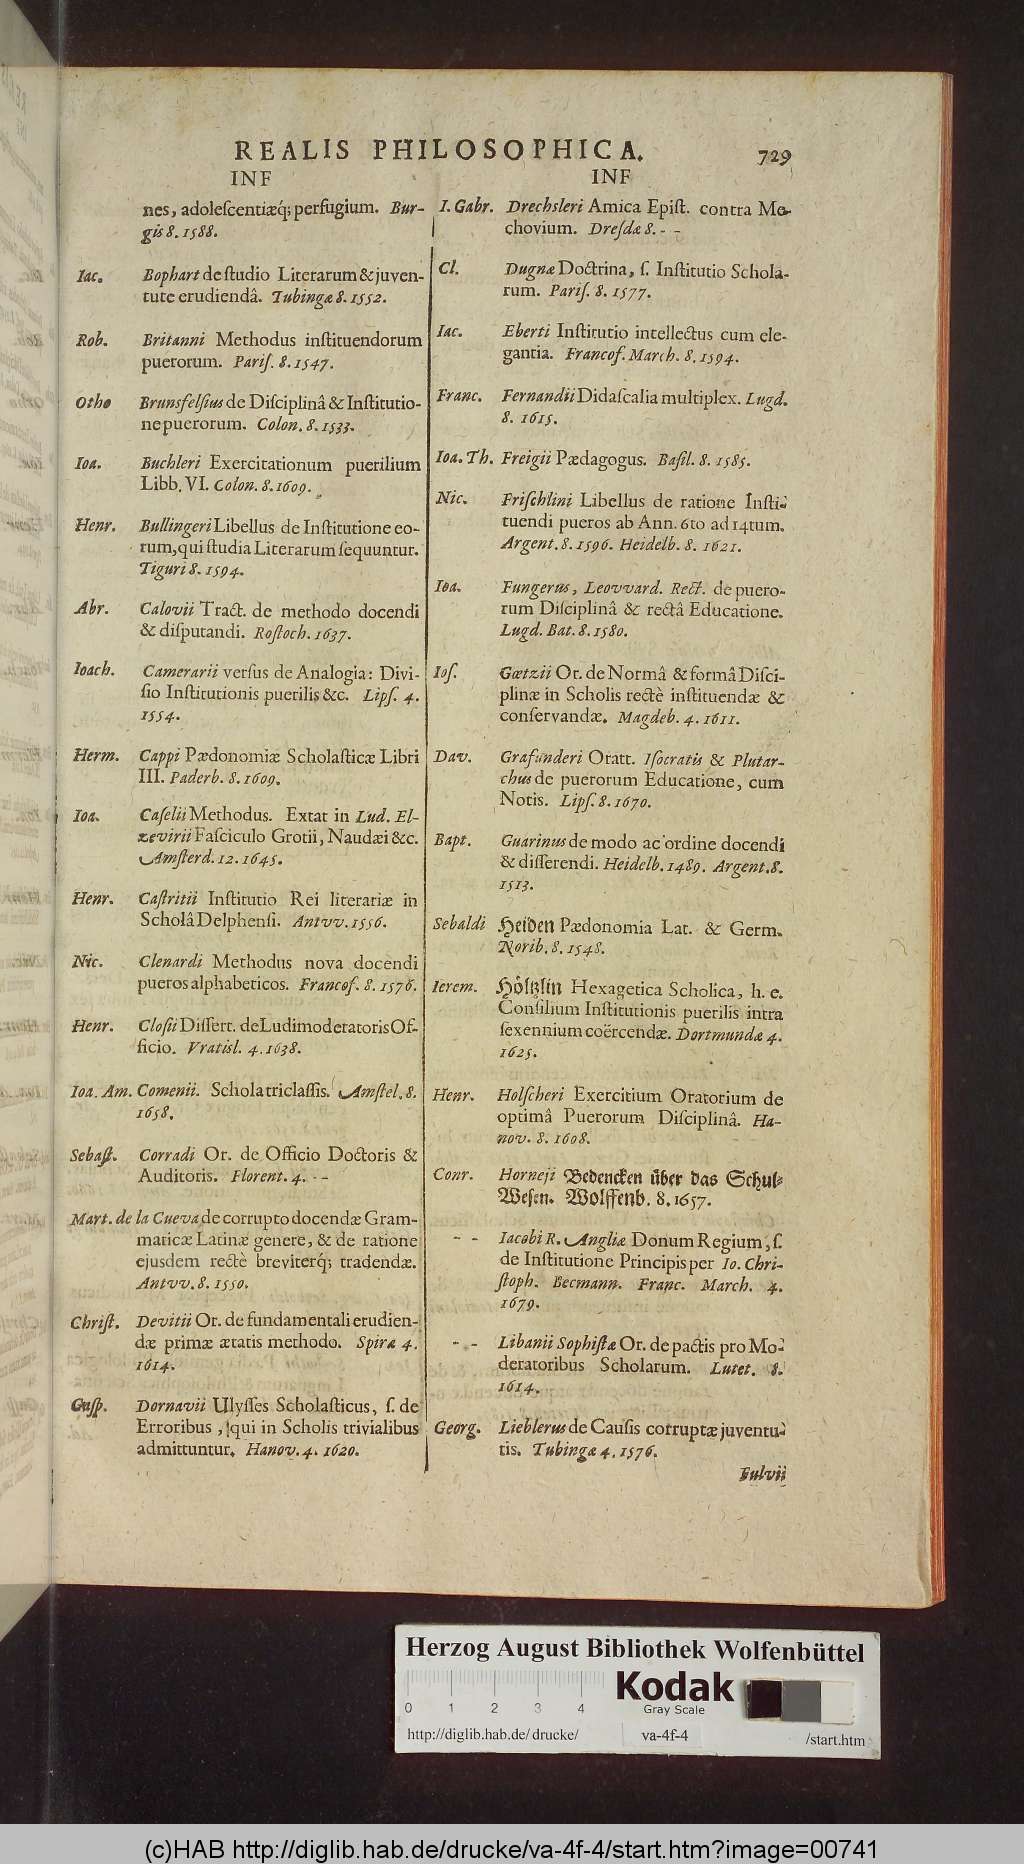 REALIS PHILOSOPHICA. 729
INF
nes, adoleſcentiæq́; perfugium. Bur-
gis 8. 1588.
Iac. Bophart de ſtudio Literarum & juven-
tute erudiendâ. Tubingæ 8. 1552.
Rob. Britanni Methodus inſtituendorum
puerorum. Pariſ. 8. 1547.
Otho Brunsfelſius de Diſciplinâ & Inſtitutio-
ne puerorum. Colon. 8. 1533.
Ioa. Buchleri Exercitationum puerilium
Libb. VI. Colon. 8. 1609.
Henr. Bullingeri Libellus de Inſtitutione eo-
rum, qui ſtudia Literarum ſequuntur.
Tiguri 8. 1594.
Abr. Calovii Tract. de methodo docendi
& diſputandi. Roſtoch. 1637.
Ioach. Camerarii verſus de Analogia: Divi-
ſio Inſtitutionis puerilis &c. Lipſ. 4.
1554.
Herm. Cappi Pædonomiæ Scholaſticæ Libri
III. Paderb. 8. 1609.
Ioa. Caſelii Methodus. Extat in Lud. El-
zevirii Faſciculo Grotii, Naudæi &c.
Amſterd. 12. 1645.
Henr. Caſtritii Inſtitutio Rei literariæ in
Scholâ Delphenſi. Antvv. 1556.
Nic. Clenardi Methodus nova docendi
pueros alphabeticos. Francof. 8. 1576.
Henr. Cloſii Diſſert. de Ludimoderatoris Of-
ficio. Vratisl. 4. 1638.
Ioa. Am. Comenii. Schola triclaſſis. Amſtel. 8.
1658.
Sebaſt. Corradi Or. de Officio Doctoris &
Auditoris. Florent. 4. - -
Mart. de la Cueva de corrupto docendæ Gram-
maticæ Latinæ genere, & de ratione
ejusdem rectè breviterq́; tradendæ.
Antvv. 8. 1550.
Chriſt. Devitii Or. de fundamentali erudien-
dæ primæ ætatis methodo. Spiræ 4.
1614.
Caſp. Dornavii Ulyſſes Scholaſticus, ſ. de
Erroribus, qui in Scholis trivialibus
admittuntur. Hanov. 4. 1620.
INF
I. Gabr. Drechsleri Amica Epiſt. contra Me-
chovium. Dreſdæ 8. - -
Cl. Dugnæ Doctrina, ſ. Inſtitutio Schola-
rum. Pariſ. 8. 1577.
Iac. Eberti Inſtitutio intellectus cum ele-
gantia. Francof. March. 8. 1594.
Franc. Fernandii Didaſcalia multiplex. Lugd.
8. 1615.
Ioa. Th. Freigii Pædagogus. Baſil. 8. 1585.
Nic. Friſchlini Libellus de ratione Inſti-
tuendi pueros ab Ann. 6to ad 14tum.
Argent. 8. 1596. Heidelb. 8. 1621.
Ioa. Fungerus, Leovvard. Rect. de puero-
rum Diſciplinâ & rectâ Educatione.
Lugd. Bat. 8. 1580.
Ioſ. Gœtzii Or. de Normâ & formâ Diſci-
plinæ in Scholis rectè inſtituendæ &
conſervandæ. Magdeb. 4. 1611.
Dav. Grafunderi Oratt. Iſocratis & Plutar-
chus de puerorum Educatione, cum
Notis. Lipſ. 8. 1670.
Bapt. Guarinus de modo ac ordine docendi
& diſſerendi. Heidelb. 1489. Argent. 8.
1513.
Sebaldi Heiden Pædonomia Lat. & Germ.
Norib. 8. 1548.
Ierem. Höltzlin Hexagetica Scholica, h. e.
Conſilium Inſtitutionis puerilis intra
ſexennium coërcendæ. Dortmundæ 4.
1625.
Henr. Holſcheri Exercitium Oratorium de
optimâ Puerorum Diſciplinâ. Ha-
nov. 8. 1608.
Conr. Horneji Bedencken über das Schul-
Weſen. Wolffenb. 8. 1657.
- - Iacobi R. Angliæ Donum Regium, ſ.
de Inſtitutione Principis per Io. Chri-
ſtoph. Becmann. Franc. March. 4.
1679.
- - Libanii Sophiſtæ Or. de pactis pro Mo-
deratoribus Scholarum. Lutet. 8.
1614.
Georg. Lieblerus de Cauſis corruptæ juventu-
tis. Tubingæ 4. 1576.
Fulvii
Herzog August Bibliothek Wolfenbüttel
Kodak
Gray Scale
0 1 2 3 4
http://diglib.hab.de/drucke/ va-4f-4 /start.htm
(c)HAB http://diglib.hab.de/drucke/va-4f-4/start.htm?image=00741